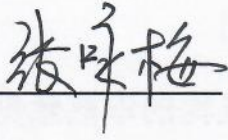 张咏梅